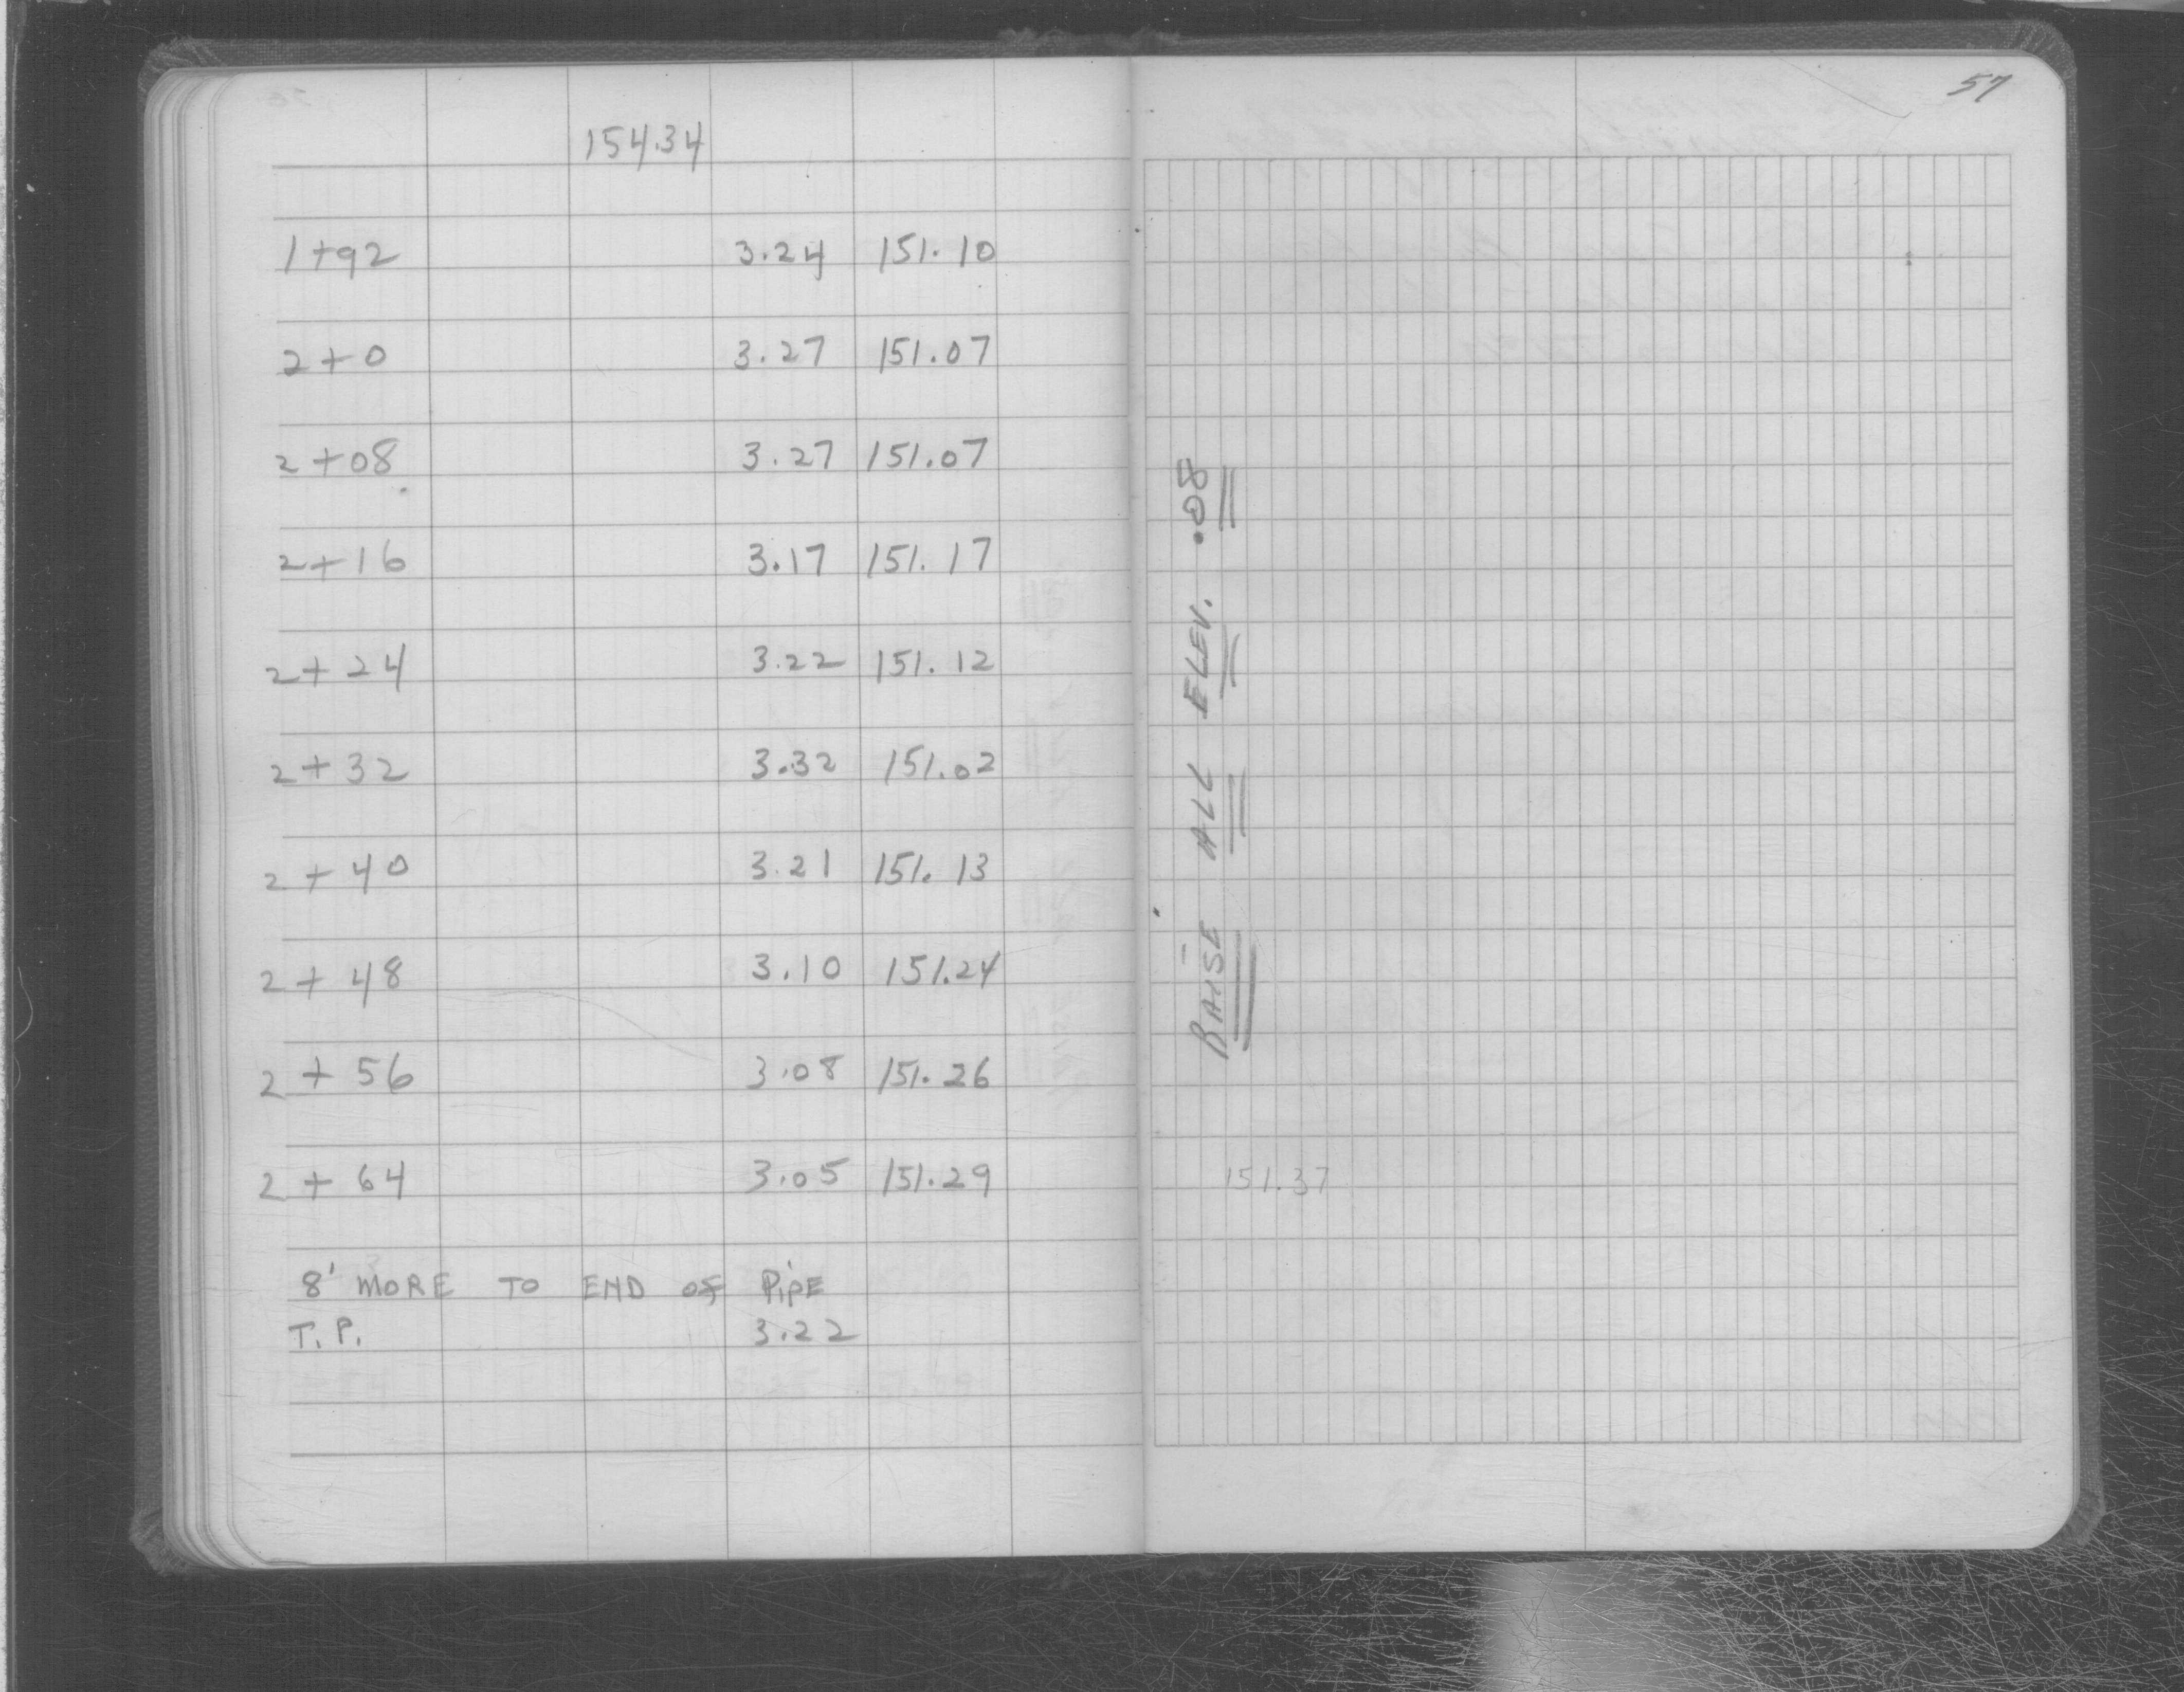 154.34
1+92 3.24 151.10
2+0 3.27 151.07
2+08 3.27 151.07
2+16 3.17 151.17
2+24 3.22 151.12
2+32 3.32 151.02
2+40 3.21 151.13
2+48 3.10 151.24
2+56 3.08 151.26
2+64 3.05 151.29
8' MORE TO END OF PIPE
T.P. 3.22
57
RAISE ALL ELEV. .08
151.37